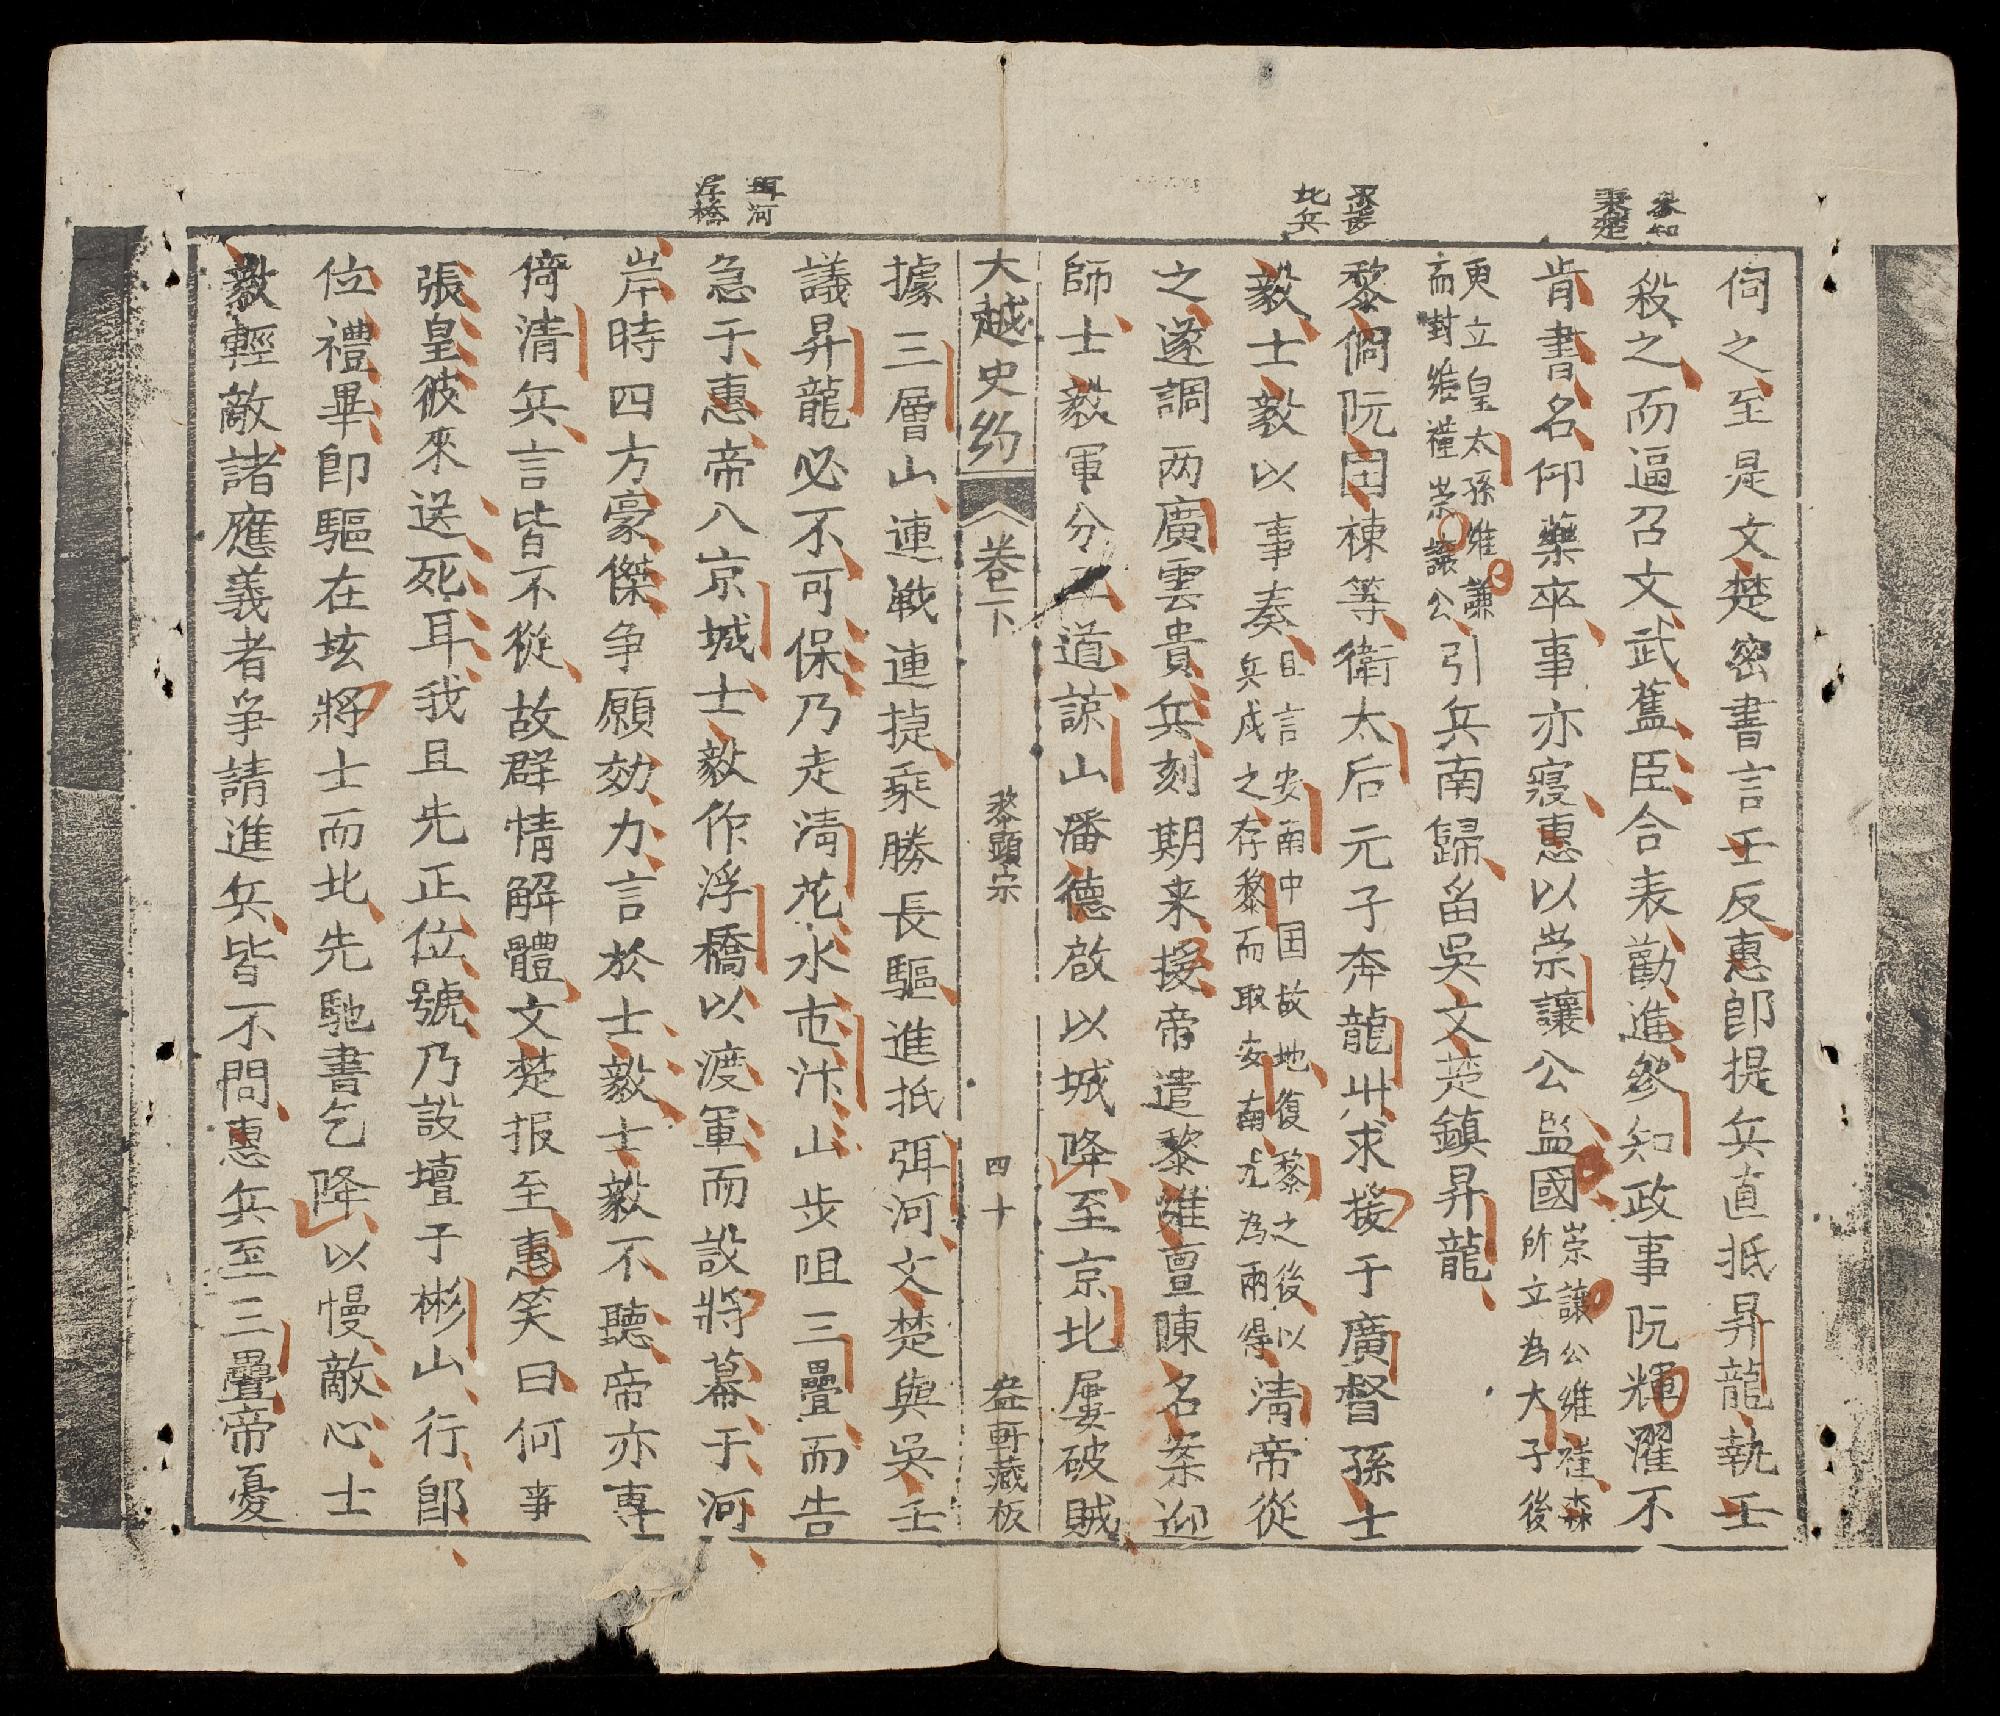 伺之至是文楚密書言壬反惠即提兵直抵昇龍執壬
殺之而逼召文武舊臣合表勸進參知政事阮輝濯不
肯書名仰藥卒事亦寢惠以崇讓公監國
崇讓公維䄎森
所立為大子後
更立皇太孫維謙
而封維䄎崇讓公
引兵南歸畱吳文楚鎮昇龍
黎侗阮囯棟等衛太后元子奔龍州求援于廣督孫士
毅士毅以事奏
且言安南中囯故地復黎之後以
兵戍之存黎而取安南尤為兩得
清帝從
之遂調两廣雲貴兵刻期来援帝遣黎維亶陳名案迎
師士毅軍分二道諒山潘德啟以城降至京北屢破賊
大越史約
卷下
黎顯宗
四十
盎軒藏板
據三層山連戰連捷乘勝長驅進抵弭河文楚與吳壬
議昇龍必不可保乃走清花水屯汴山步咀三疊而告
急于惠帝入京城士毅作浮橋以渡軍而設將幕于河
岸時四方豪傑争願効力言於士毅士毅不聽帝亦專
倚清兵言皆不從故群情解體文楚报至惠笑曰何事
張皇彼來送死耳我且先正位號乃設壇于彬山行郎
位禮畢即驅在坊將士而北先馳書乞降以慢敵心士
毅輕敵諸應義者爭請進兵皆不問惠兵至三疊帝憂
參知
求援
北兵
珥河
浮橋